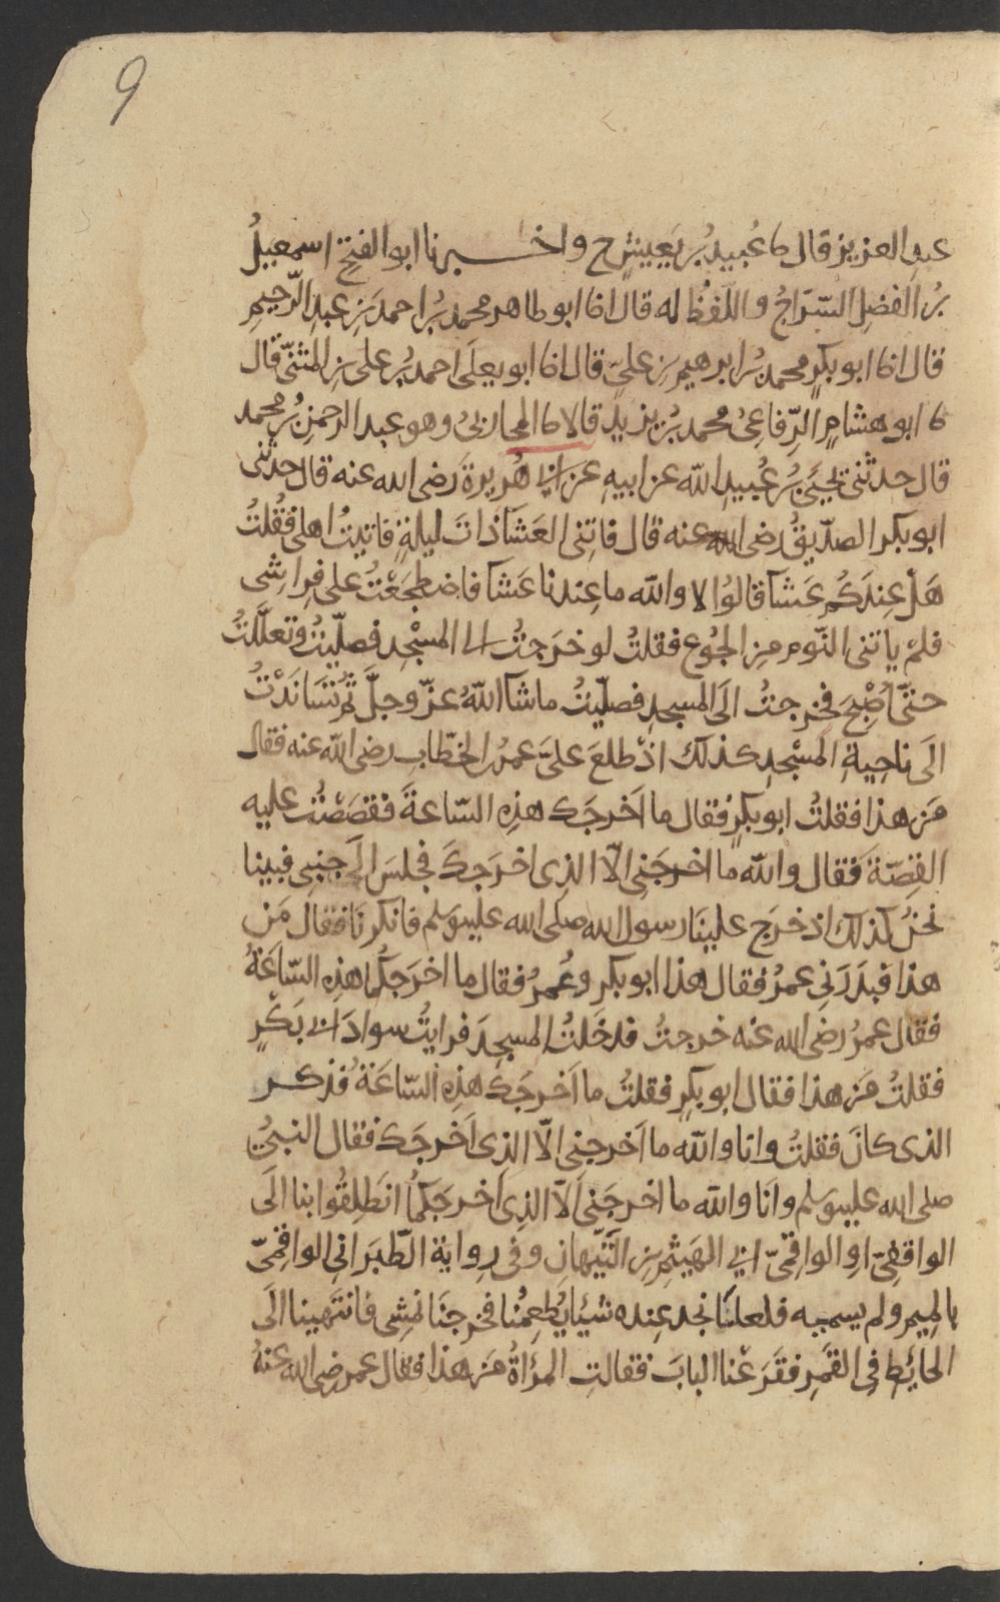 9
عبد العزيز قال نا عُبيد بُن يَعيش ح واخـــبرنا ابو الفتح اسمعيلُ
بن الفضلِ السّرّاجُ واللّفظُ له قال انا ابو طاهر محمد بُن احمدَ بنِ عبدِ الرّحيمِ
قال انا ابو بكرٍ محمد بنُ ابرهيم بنِ عليّ قال انا ابو يعلَى احمدُ بُن على بن المثنّى قال
نا ابو هشامٍ الرّفاعِىُّ محمد بُن يزيد قالا نا المحاربىُّ وهو عبد الرحمنِ بُن محمد
قال حدثنى يحيَى بنُ عُبيد اللّه عن ابيهِ عن ابى هُريرةَ رضى الله عنه قال حدثنى
ابو بكر الصدّيقُ رضى الله عنه قال فاتنِى العَشآ ذاتَ ليلةٍ فاتيتُ اهلى فقُلتُ
هَلْ عِندَكُم عَشآ قالُوا لا واللّه ما عِندنا عَشآ فاضطجَعْتُ على فِراشِى
فلمْ ياتنى النّوم مِن الجُوع فقلتُ لو خرَجتُ الى المسْجِد فصلّيتُ وتعلَّلتُ
حتّى اُصْبِحَ فخرجتُ الَى المَسجدِ فصلّيتُ ما شآ اللّهُ عزّ وجلَّ ثم تسَانَدْتُ
الَى ناحِيةِ المَسْجِدِ كذلك اذْ طلعَ علىَّ عمرُ بن الخطّابِ رضى اللّه عنه فقال
مَن هذا فقلتُ ابو بكرٍ فقال ما اَخرجَك هذِهِ السّاعةَ فقصَصْتُ عليه
القِصّة فقال واللّه ما اخرجَنِى الّا الذِى اخرَجَكَ فجلسَ الَى جنبِى فبينا
نحنُ كذلك اذ خرَج علينَا رسول الله صلى الله عليه وسلم فانكرنَا فقال مَن
هذا فبدَرَنِى عمرُ فقال هذا ابو بكر وعُمرُ فقال ما اخرَجكُما هذِهِ السّاعَةَ
فقال عمرُ رضى الله عنه خرجتُ فدخَلتُ المسجِدَ فرايتُ سوادَ ابى بَكْرٍ
فقلتُ مَن هذا فقال ابو بكرٍ فقلتُ ما اَخرجَكَ هذِهِ السّاعَةَ فذكـــر
الذى كانَ فقلتُ وانا واللّه ما اَخرجنى الّا الذِى اَخرجَك فقال النبىُّ
صلى الله عليه وسلم وانَا واللّه ما اخرجَنى الّا الذِى اَخرجَكُما انطَلِقُوا بنا الَى
الواقفِىّ او الواقِمّى ابى الهَيثمِ بنِ التَّيّهانِ وفى رِوايةِ الطّبَرانِى الواقِمىّ
بالمِيم ولم يسمه فلعلنَا نجد عِنده شيئا يُطعِمُنا فخرجنَا نمشِى فانتهينا الَى
الحايَطِ فِى القَمَرِ فقَرَعْنا البابَ فقالتِ المرأةُ مَن هذا فقال عمر رضى الله عنهُ